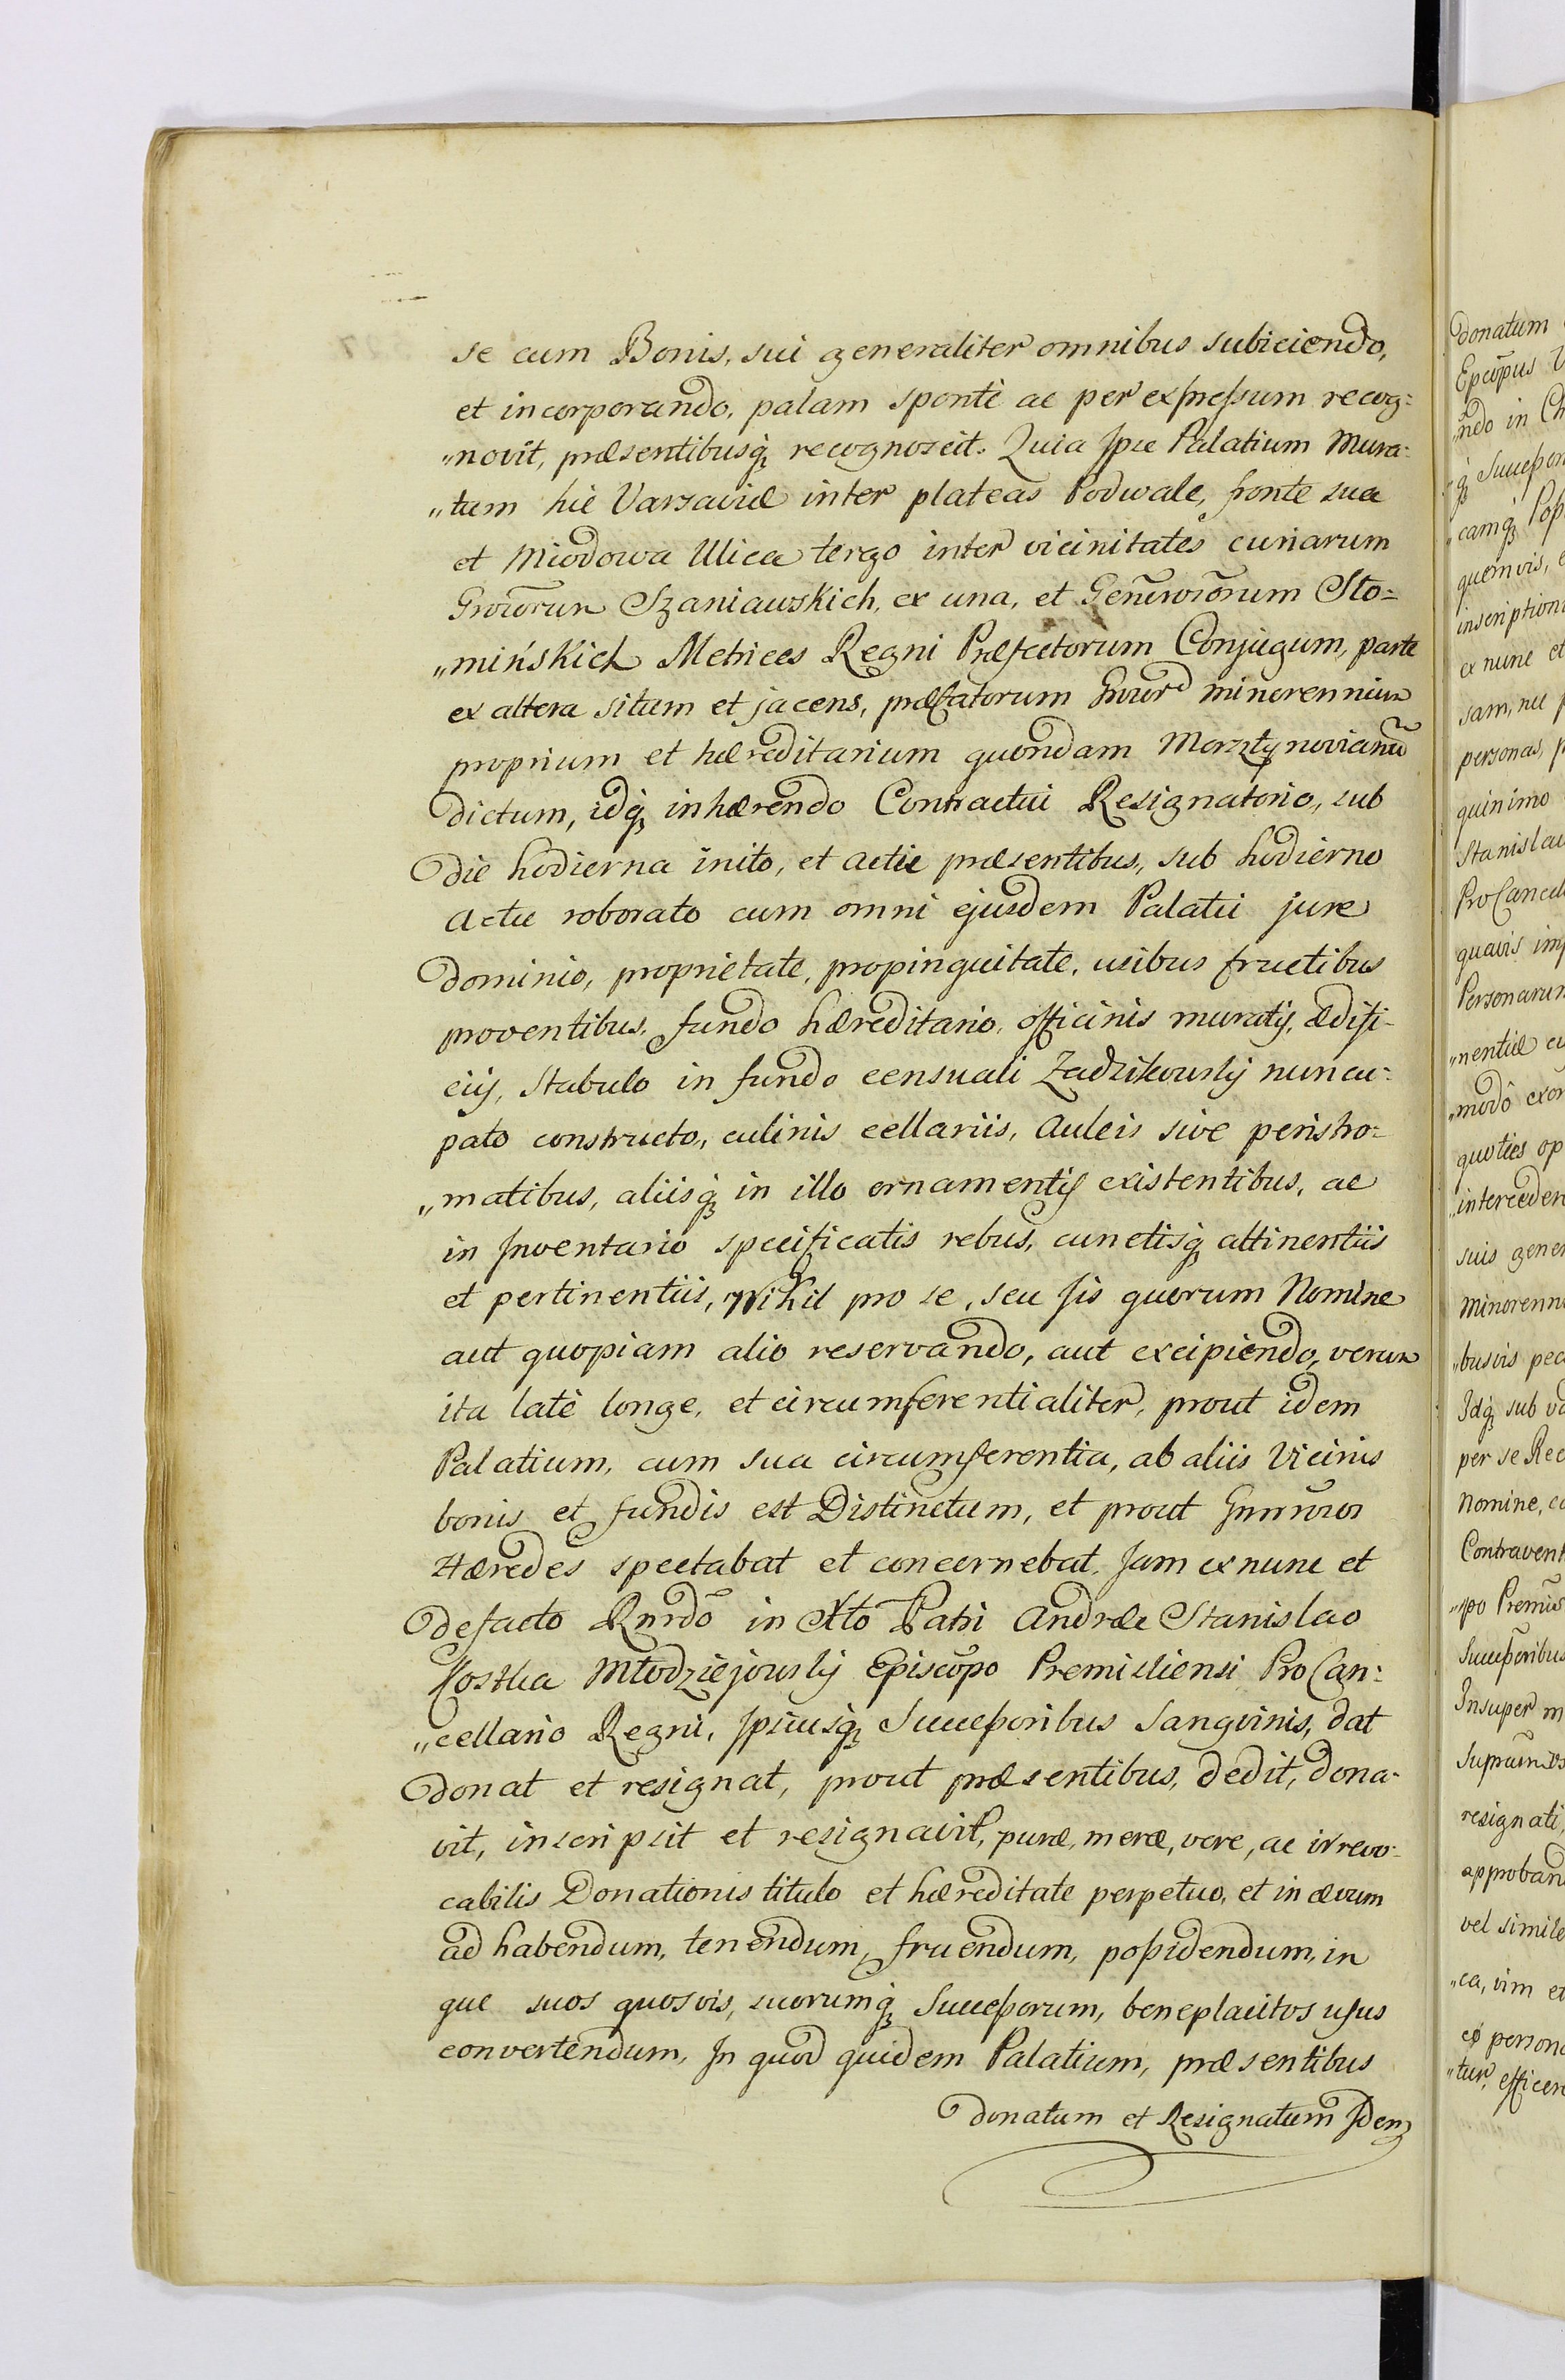 se cum Bonis, sui generaliter omnibus subiciendo,
et incorporando, palam sponte ac per expressum recog:
„novit, præsentibusq₃ recognoscit. Quia Ipse Palatium Mura:
„tum hic Varsaviæ inter plateas Podwale, fronte sua
et Miodowa Ulica tergo inter vicinitates curiarum
Szaniawskich, ex una, et Sto=
„mińskich Metrices Regni Præfectorum Conjugum, parte
ex altera situm et jacens, præfatorum minorennium
proprium et hæreditarium quondam
dictum, idq₃ inhærendo Contractui Resignatorio, sub
die hodierna inito, et actu præsentibus, sub hodierno
actu roborato cum omni ejusdem Palatii jure
dominio, proprietate, propinquitate, usibus fructibus
proventibus, fundo hæreditario, officinis muratis, ædifi-
ciis, Stabulo in fundo censuali nuncu:
pato constructo, culinis cellariis, Auleis sive peristro=
„matibus, aliisq₃ in illo ornamentis existentibus, ac
in Inventario specificatis rebus, cunctisq₃ attinentiis
et pertinentiis, Nihil pro se, seu Iis quorum Nomine
aut quopiam alio reservando, aut excipiendo, verum
ita late longe, et circumferentialiter, prout idem
Palatium, cum sua circumferentia, ab aliis Vicinis
bonis et fundis est Distinctum, et prout
Hæredes spectabat et concernebat. Jam ex nunc et
defacto Rndo in Xto Patri Andræe Stanislao
Kostka Młodziejowsky Episcopo Premisliensi ProCan:
„cellario Regni, Ipsiusq₃ Successoribus Sangvinis, dat
donat et resignat, prout præsentibus, dedit, dona-
vit, inscripsit et resignavit, puræ, meræ, vere, ac irrevo-
cabilis Donationis titulo et hæreditate perpetuo, et in ævum
ad habendum, tenendum, fruendum, possidendum, in
que suos quosvis, suorumq₃ Successorum, beneplacitos usus
convertendum, In quod quidem Palatium, præsentibus
donatum et Resignatum Idem
donatum
Epcopus
„ndo in
q₃
„camq₃
quemvis,
ex nunc et
sam, nec
personas,
quinimo
quavis
Personarum
„nentiæ
„modo
quoties
suis
„busvis
Idq₃ sub
per se
Nomine,
„po
Insuper
resignati,
vel
„ca, vim et